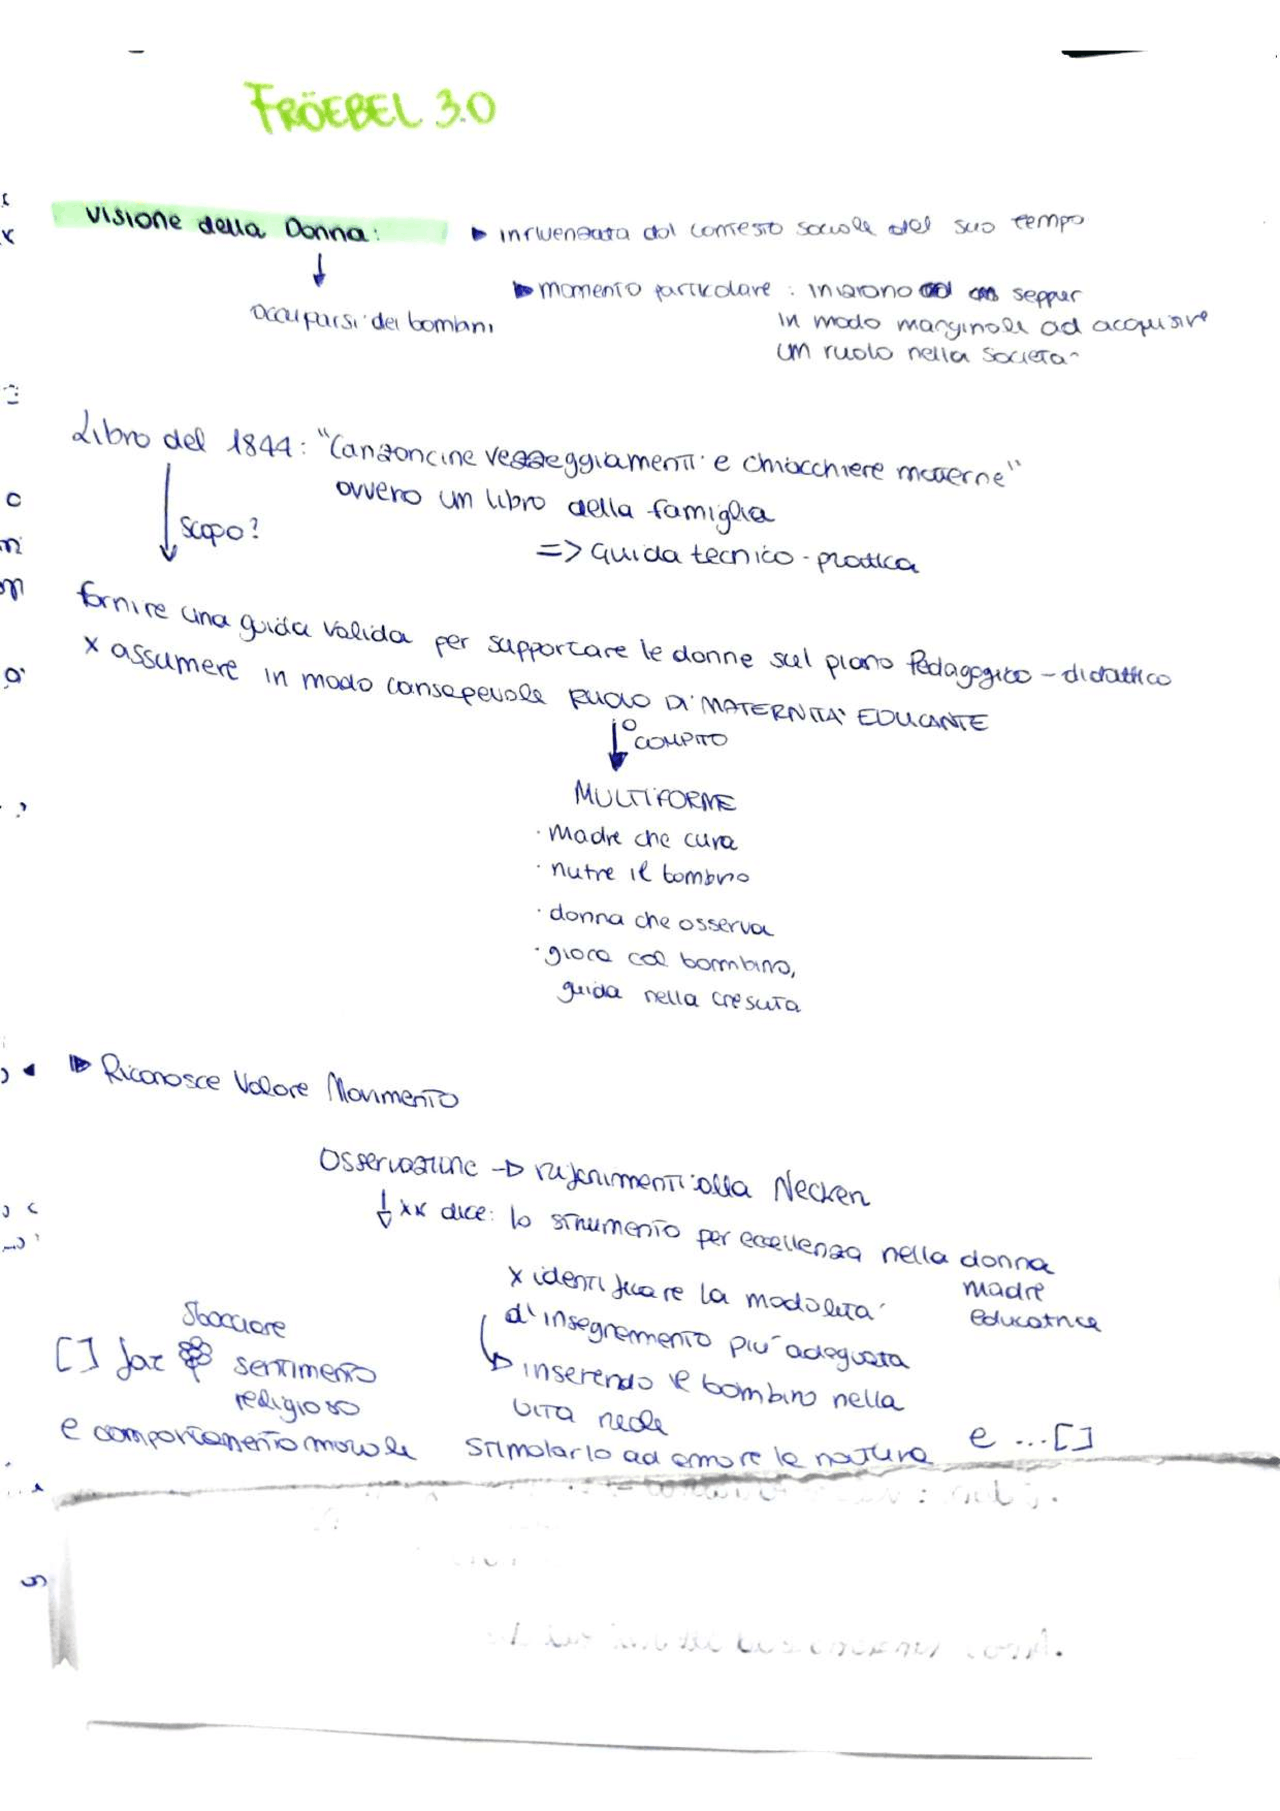 FRÖEBEL 3.0
Visione della Donna:
▶ influenzata dal contesto sociale del suo tempo
▶ momento particolare: iniziano seppur
in modo marginale ad acquisire
un ruolo nella società
occuparsi dei bambini
Libro del 1844: "Canzoncine vezzeggiamenti e chiacchiere materne"
ovvero un libro della famiglia
scopo?
=> Guida tecnico-pratica
fornire una guida valida per supportare le donne sul piano Pedagogico-didattico
x assumere in modo consapevole RUOLO DI MATERNITÀ EDUCANTE
COMPITO
MULTIFORME
· Madre che cura
· nutre il bambino
· donna che osserva
· gioca col bambino,
guida nella crescita
▶ Riconosce Valore Movimento
Osservazione → riferimenti alla Necker
xk dice: lo strumento per eccellenza nella donna
madre
educatrice
x identificare la modalità
d'insegnamento più adeguata
inserendo il bambino nella
vita reale
stimolarlo ad amare la natura e ...[]
sbocciare
[] far sentimento
religioso
e comportamento morale